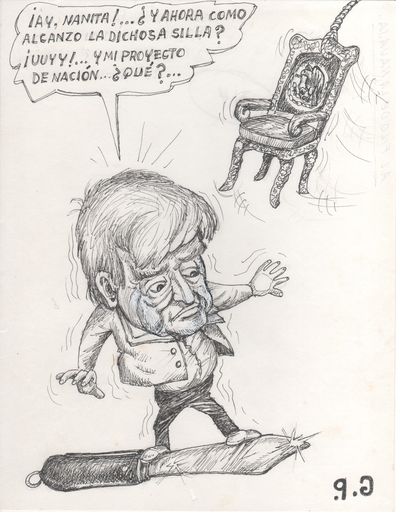 ¡AY, NANITA!... ¿Y AHORA COMO
ALCANZO LA DICHOSA SILLA?
¡UUYY!... Y MI PROYECTO
DE NACIÓN... ¿QUÉ?...
G.P.